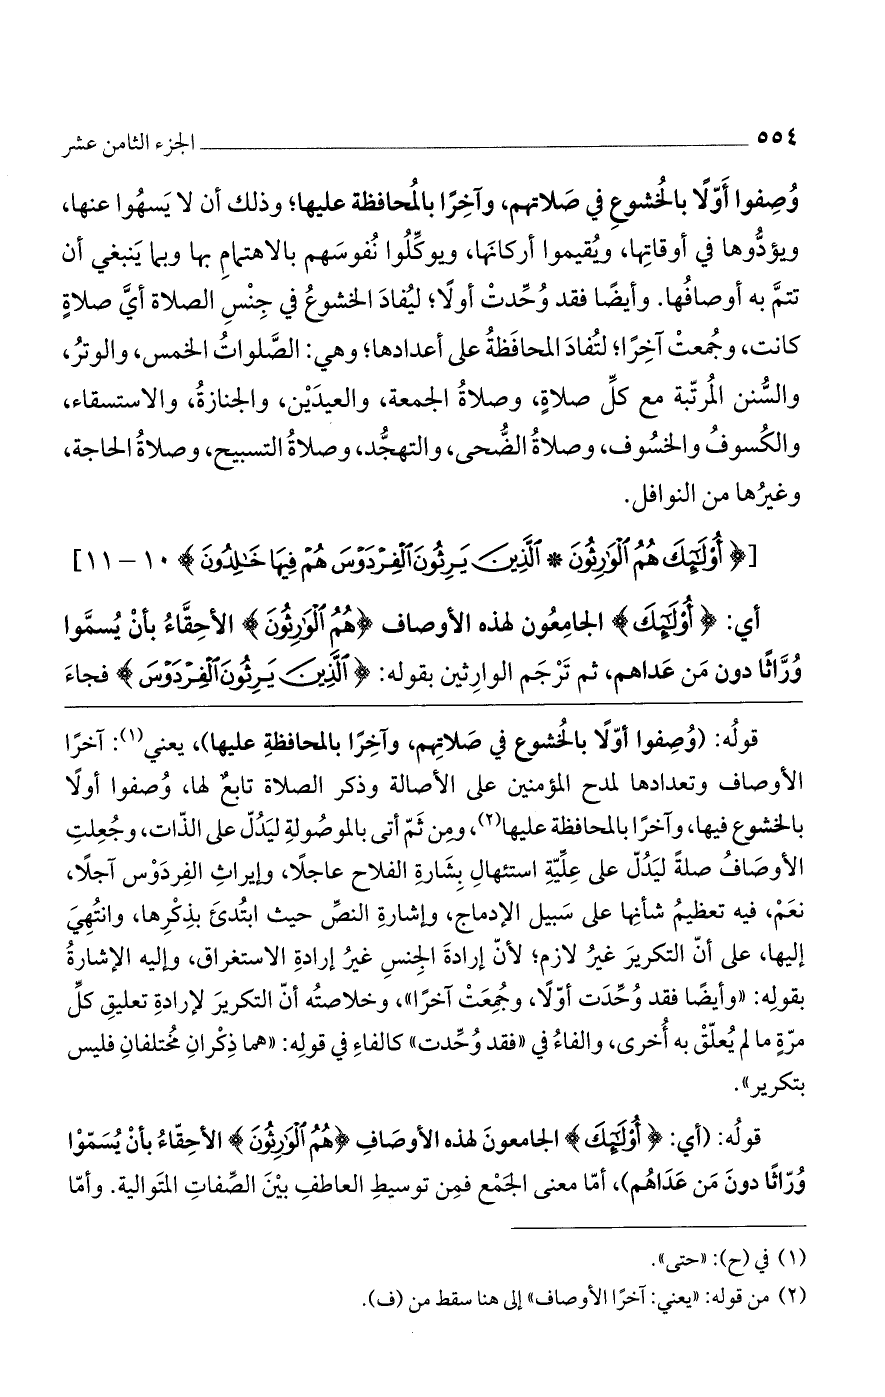 ٥٥٤ الجزء الثامن عشر
وُصِفوا أَوّلًا بالخُشوعِ في صَلاتِهم، وآخِرًا بالمُحافظة عليها؛ وذلك أن لا يَسهُوا عنها،
ويؤدُّوها في أوقاتِها، ويُقيموا أركانَها، ويوكِّلُوا نُفوسَهم بالاهتمامِ بها وبما يَنبغي أن
تتمَّ به أوصافُها. وأيضًا فقد وُحِّدتْ أولًا؛ ليُفادَ الخشوعُ في جِنْسِ الصلاة أيَّ صلاةٍ
كانت، وجُمعتْ آخِرًا؛ لتُفادَ المحافَظةُ على أعدادها؛ وهي: الصَّلواتُ الخمس، والوترُ،
والسُّنن المُرتّبة مع كلِّ صلاةٍ، وصلاةُ الجمعة، والعيدَيْن، والجنازةُ، والاستسقاء،
والكُسوفُ والخسُوف، وصلاةُ الضُّحى، والتهجُّد، وصلاةُ التسبيح، وصلاةُ الحاجة،
وغيرُها من النوافل.
[﴿ أُوْلَٰٓئِكَ هُمُ ٱلْوَٰرِثُونَ * ٱلَّذِينَ يَرِثُونَ ٱلْفِرْدَوْسَ هُمْ فِيهَا خَٰلِدُونَ ﴾ ١٠ – ١١]
أي: ﴿ أُوْلَٰٓئِكَ ﴾ الجامِعُون لهذه الأوصاف ﴿هُمُ ٱلْوَٰرِثُونَ ﴾ الأحِقَّاءُ بأنْ يُسمَّوا
وُرَّاثًا دون مَن عَداهم، ثم تَرْجَم الوارِثين بقوله: ﴿ ٱلَّذِينَ يَرِثُونَ ٱلْفِرْدَوْسَ ﴾ فجاءَ
قولُه: (وُصِفوا أوّلًا بالخُشوع في صَلاتِهم، وآخِرًا بالمحافظةِ عليها)، يعني(١): آخرًا
الأوصاف وتعدادها لمدح المؤمنين على الأصالة وذكر الصلاة تابعٌ لها، وُصفوا أولًا
بالخشوع فيها، وآخرًا بالمحافظة عليها(٢)، ومِن ثَمّ أتى بالموصُولةِ ليَدُلّ على الذّات، وجُعِلتِ
الأوصَافُ صلةً ليَدُلّ على عِلِّيّةِ استئهالِ بِشَارةِ الفلاح عاجلًا، وإيراثِ الفِردَوْس آجلًا،
نعَمْ، فيه تعظيمُ شأنِها على سَبيل الإدماج، وإشارةِ النصِّ حيث ابتُدئَ بذِكْرِها، وانتُهِيَ
إليها، على أنّ التكريرَ غيرُ لازم؛ لأنّ إرادةَ الجِنسِ غيرُ إرادةِ الاستغراق، وإليه الإشارةُ
بقولِه: «وأيضًا فقد وُحِّدَت أوّلًا، وجُمِعَتْ آخرًا»، وخلاصتُه أنّ التكريرَ لإرادةِ تعليقِ كلِّ
مرّةٍ ما لم يُعلّقْ به أُخرى، والفاءُ في «فقد وُحِّدت» كالفاءِ في قولِه: «هما ذِكْرانِ مُختلفانِ فليس
بتكرير».
قولُه: (أي: ﴿ أُوْلَٰٓئِكَ ﴾ الجامعونَ لهذه الأوصَافِ ﴿هُمُ ٱلْوَٰرِثُونَ ﴾ الأحِقّاءُ بأنْ يُسَمّوْا
وُرّاثًا دونَ مَن عَدَاهُم)، أمّا معنى الجَمْع فمِن توسيطِ العاطفِ بيْنَ الصِّفاتِ المتَوالية. وأمّا
(١) في (ح): «حتى».
(٢) من قوله: «يعني: آخرًا الأوصاف» إلى هنا سقط من (ف).